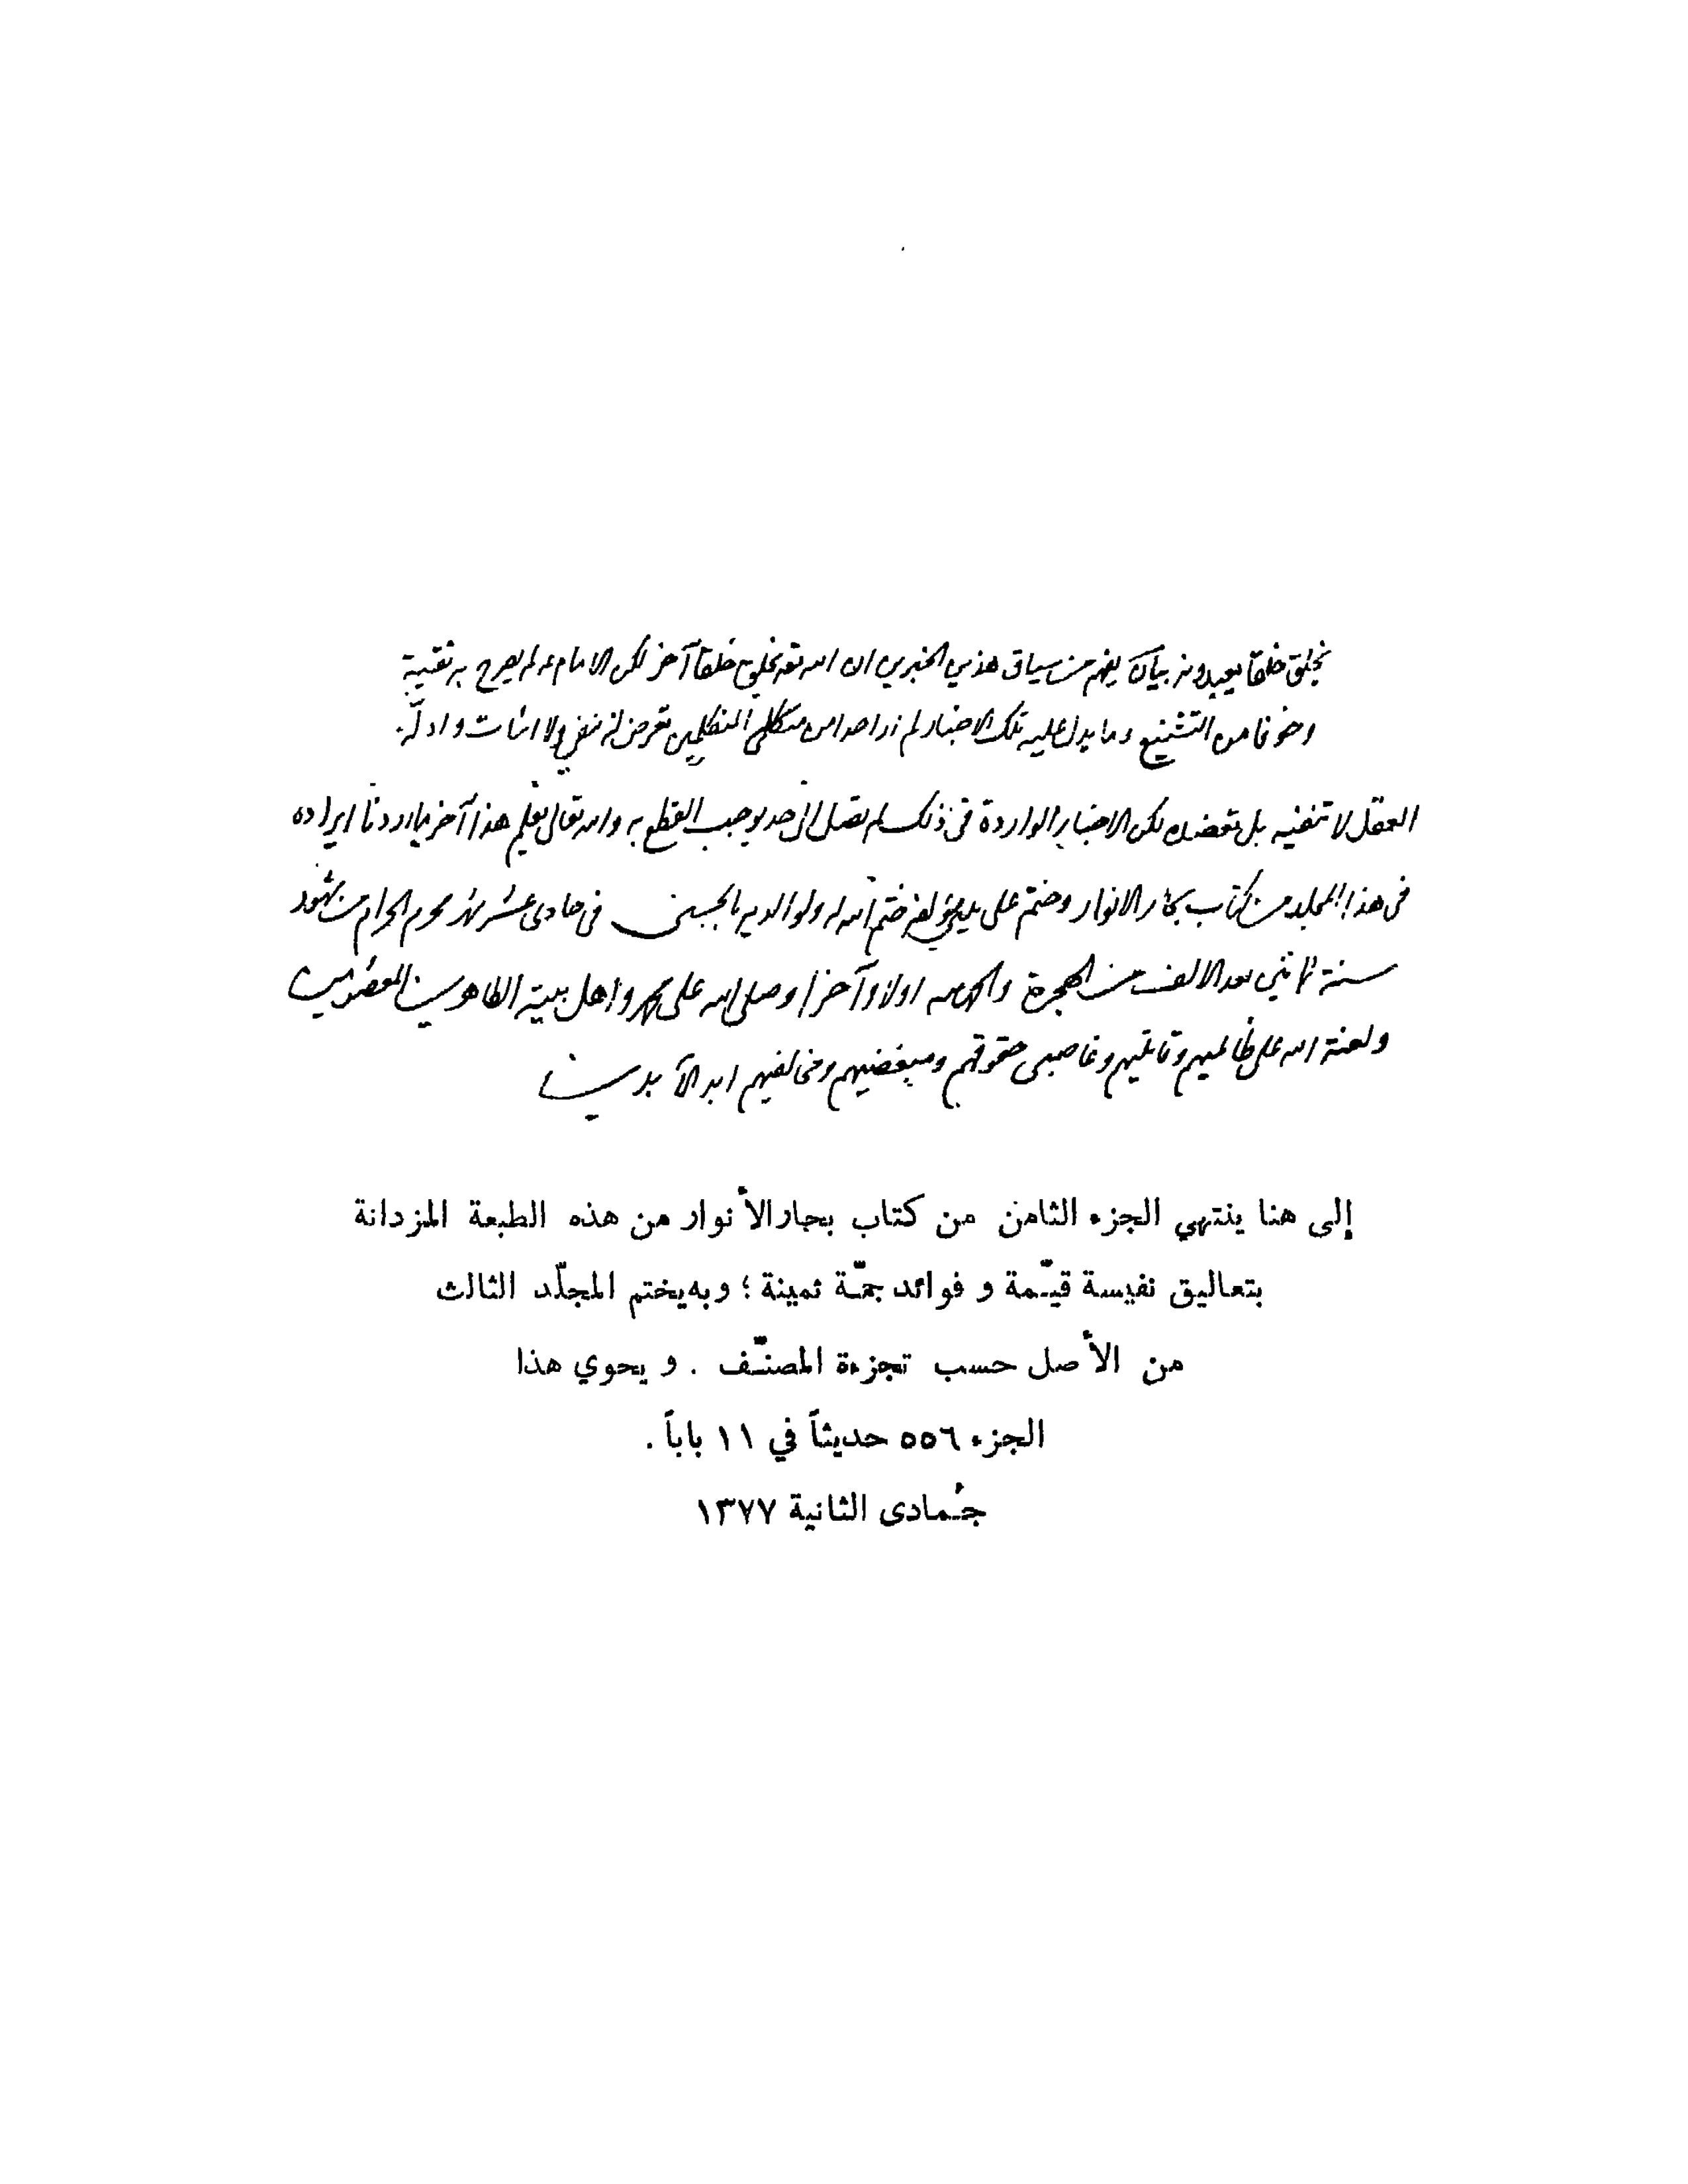 يخلق خلقا يعبدونه بيان يفهم من سياق هذين الخبرين ان الله تعه يخلق خلقا آخر لكن الامام ع لم يصرح به تقية
وخوفا من التشنيع وما يدل عليه تلك الاخبار لم ار احدا من متكلمي المتكلمين تعرض له بنفي ولا اثبات وادلّة
العقل لا تنفيه بل تعضده لكن الاخبار الواردة في ذلك لم تصل الى حد يوجب القطع به والله تعالى يعلم هذا آخر ما اردنا ايراده
في هذا المجلد من كتاب بحار الانوار وختم على يدي مؤلفه ختم الله له ولوالديه بالحسنى في حادي عشر شهر محرم الحرام من شهور
سنة ثمانين بعد الالف من الهجرة والحمد لله اولا وآخرا وصلى الله على محمد واهل بيته الطاهرين المعصومين
ولعنة الله على ظالميهم وقاتليهم وغاصبي حقوقهم ومبغضيهم ومخالفيهم ابد الآبدين
إلى هنا ينتهي الجزء الثامن من كتاب بحار الأنوار من هذه الطبعة المزدانة
بتعاليق نفيسة قيّمة و فوائد جمّة ثمينة ؛ وبه يختم المجلّد الثالث
من الأصل حسب تجزءة المصنّف . و يحوي هذا
الجزء ٥٥٦ حديثاً في ١١ باباً .
جُمادى الثانية ١٣٧٧